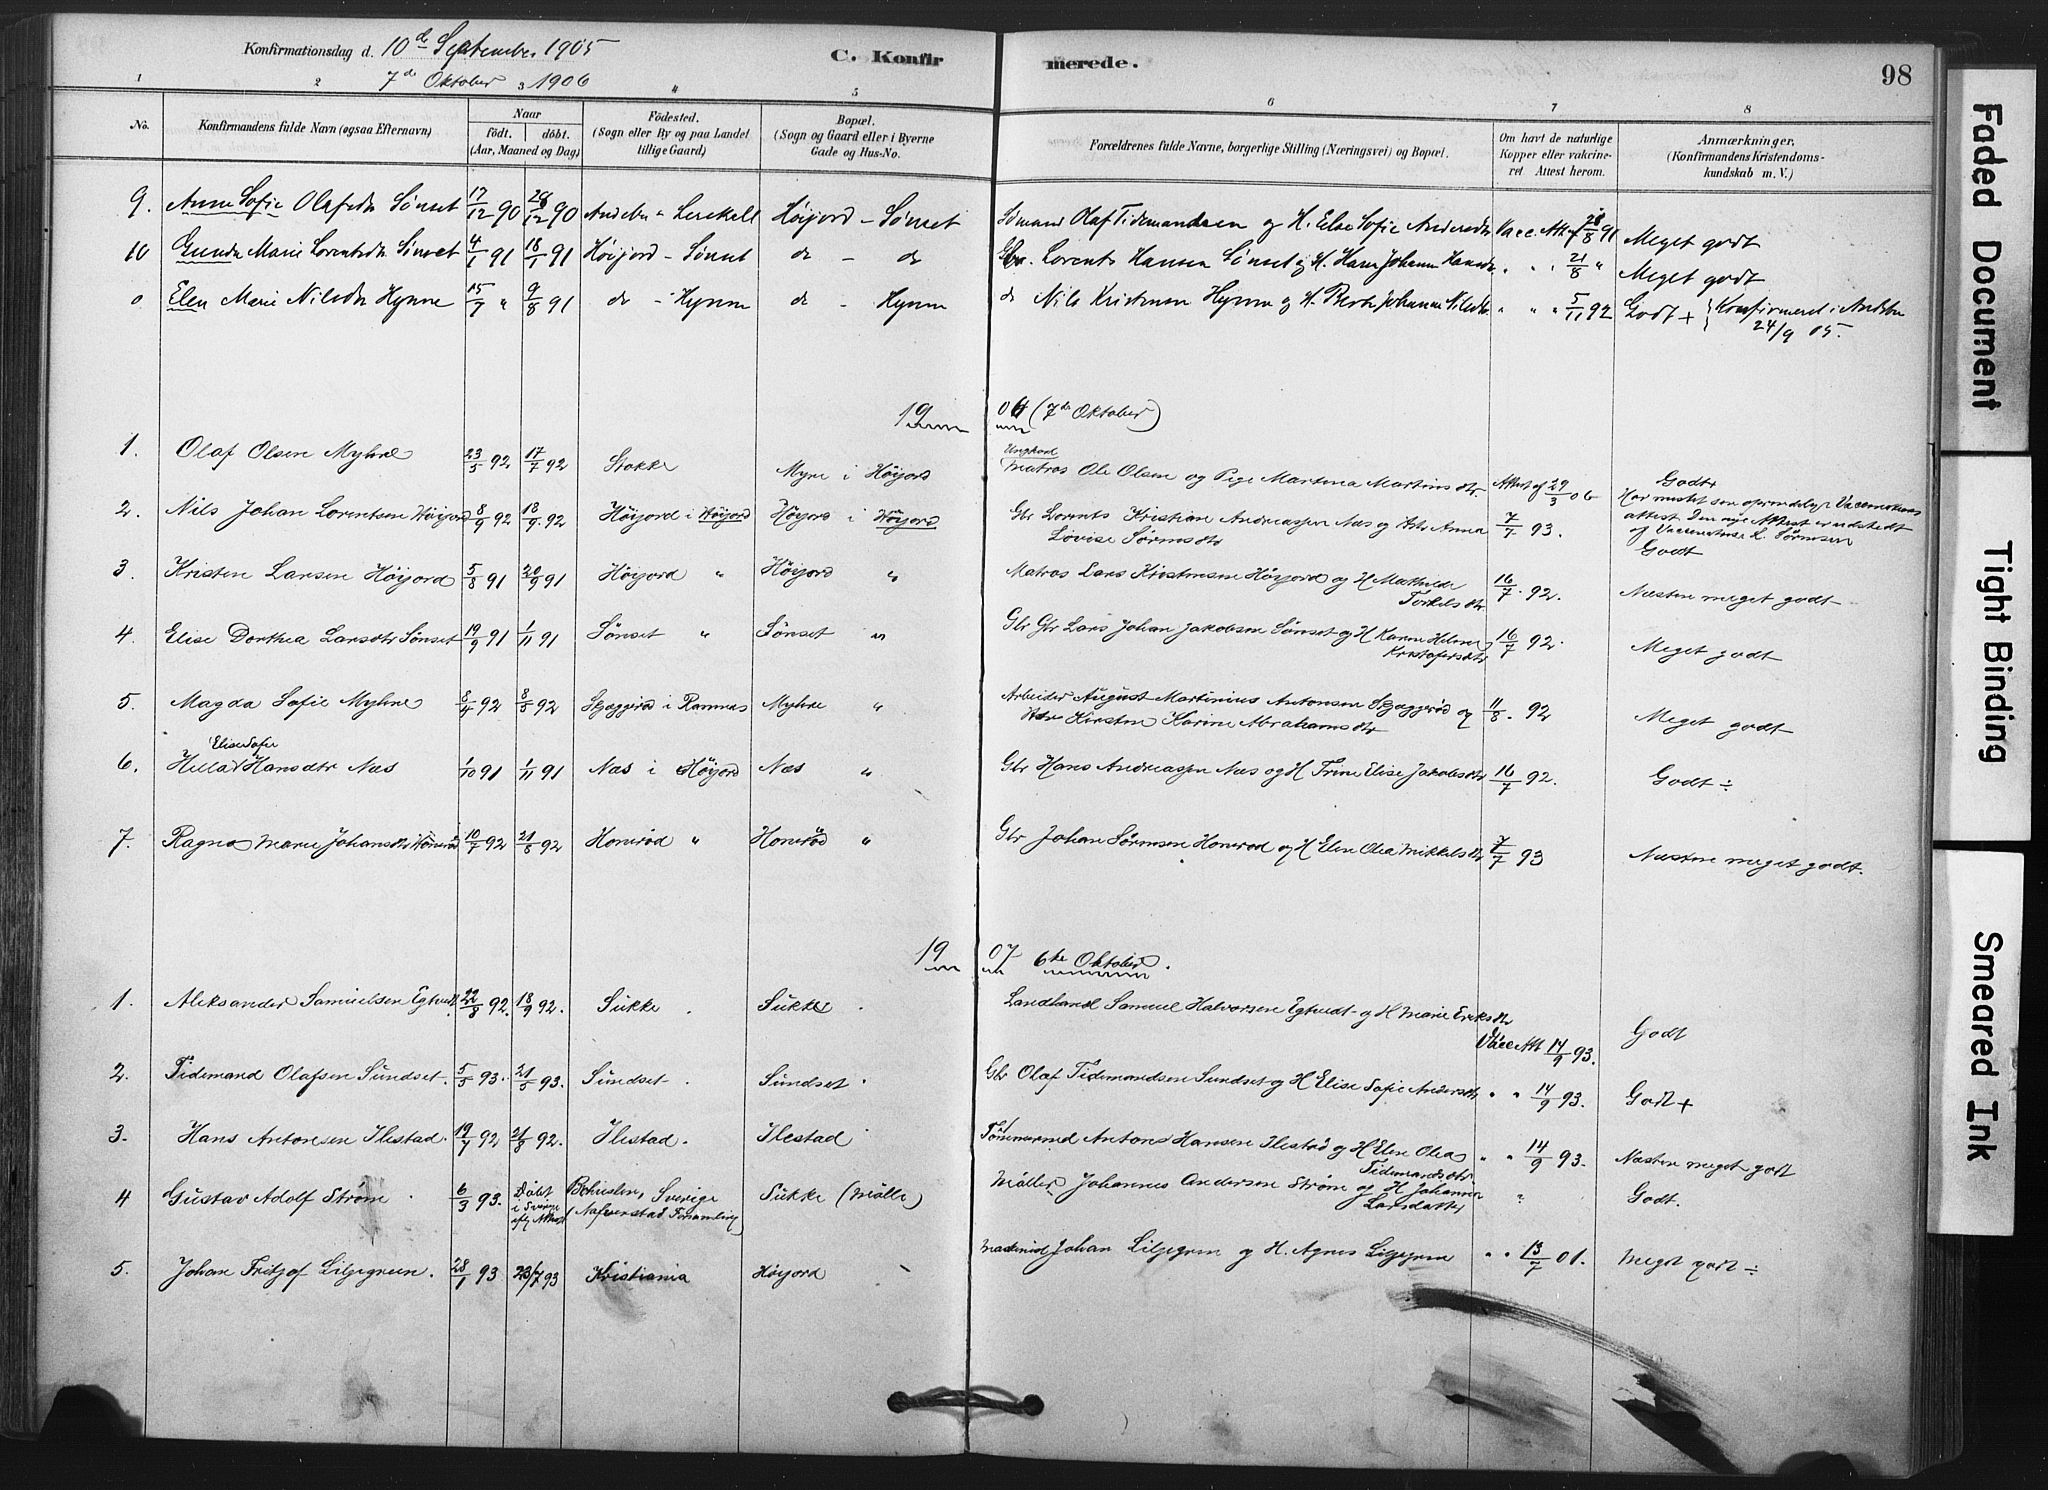 Konfirmationsdag d. 10de September 1905
7de Oktober 1906
C. Konfirmerede.
98
1 2 3 4 5 6 7 8
No. Konfirmandens fulde Navn (ogsaa Efternavn) Naar födt. döbt. (Aar, Maaned og Dag) Födested. (Sogn eller By og paa Landet tillige Gaard) Bopæl. (Sogn og Gaard eller i Byerne Gade og Hus-No. Forældrenes fulde Navne, borgerlige Stilling (Næringsvei) og Bopæl. Om havt de naturlige Kopper eller vakcineret Attest herom. Anmærkninger. (Konfirmandens Kristendomskundskab m. V.)
9. Anne Sofie Olafsdtr Sönset 17/12 90 28/12 90 Andebu - Höijord - Sönset Sömand Olaf Tidemandsen og H. Else Sofie Andersdtr Vacc. Att. 28/8 91 Meget godt
10 Gunda Marie Lorentsdtr Sönset 4/1 91 18/1 91 Höijord - Sönset do - do Gbr. Lorents Hansen Sönset og H. Karen Johanne Hansdtr " " 21/8 " Meget godt
0 Elen Marie Nilsdtr Hynne 15/7 " 9/8 91 do - Hynne do - Hynne do Nils Kristensen Hynne og H. Berte Johanne Nilsdtr " " 5/11 92 Godt + Konfirmeret i Andebu
24/9 05.
1906 (7de Oktober)
1. Olaf Olsen Myhre 23/5 92 17/7 92 Stokke Myre i Höijord Ungkarl
Matros Ole Olsen og Pige Martina Martinsdtr. Attest af 29/3 06 Godt
2. Nils Johan Lorentsen Höijord 8/9 92 18/9 92 Höijord i Höijord Höijord i Höijord Gbr Lorents Kristian Andreassen Næs og Hstr Anna
Lovise Sörensdtr 7/7 93. Har mistet sen oprindelige Vaccinations
attest. Den nye Attest er udstedt
Godt
3. Kristen Larsen Höijord 5/8 91 20/9 91 Höijord " Höijord " Matros Lars Kristensen Höijord og H Mathilde
Torkelsdtr 16/7 92. Næsten meget godt
4. Elise Dorthea Larsdtr Sönset 19/9 91 1/11 91 Sönset " Sönset " Gbr Gbr Lars Johan Jakobsen Sönset og H Karen Helene
Kristofersdtr 16/7 92. Meget godt
5. Magda Sofie Myhre 8/4 92 8/5 92 Skjeggeröd i Ramnes Myhre " Arbeider August Martinius Antonsen Skjæggeröd og
Hstr Kirsten Karine Abrahamsdtr 11/8. 92 Meget godt
Elise Sofie
6. Hella Hansdtr Næs 1/10 91 1/11 91 Næs i Höijord Næs " Gbr Hans Andreassen Næs og H Trine Elise Jakobsdtr 16/7 92. Godt ÷
7. Ragna Marie Johansdtr Honeröd 10/7 92 21/8 92 Honeröd " Honeröd " Gbr Johan Sörensen Honeröd og H Elen Olea Mikkelsdtr 7/7 93 Næsten meget godt.
1907 6te Oktober.
1. Aleksander Samuelsen Egtvedt 22/8 92. 18/9 92. Sukke . Sukke . Landhandl Samuel Halvorsen Egtvedt og H Marie Eriksdtr
Vacc Att 14/9 93. Godt
2. Tidemand Olafsen Sundset. 5/5 93. 21/5 93. Sundset . Sundset . Gbr Olaf Tidemandsen Sundset og H Elise Sofie Andersdtr " " 14/9 93. Godt +
3. Hans Antonsen Ilestad. 19/7 92 21/8 92. Ilestad. Ilestad Tömmermd Anton Hansen Ilestad og H Elen Olea
Tidemandsdtr " " 14/9 93. Næsten meget godt
4 Gustav Adolf Ström . 6/3 93. Döbt
i Sverige
eftr Attest Bohuslen, Sverige
Nafverstad Forsamling Sukke (Mölle) Möller Johannes Andersen Ström og H Johanna
Larsdatter " Godt.
5. Johan Fritjof Liljegreen. 28/1 93 23/7 93 Kristiania Höijord Maskinist Johan Liljegren og H. Agnes Liljegren " " 13/7 01. Meget godt ÷
Faded Document
Tight Binding
Smeared Ink